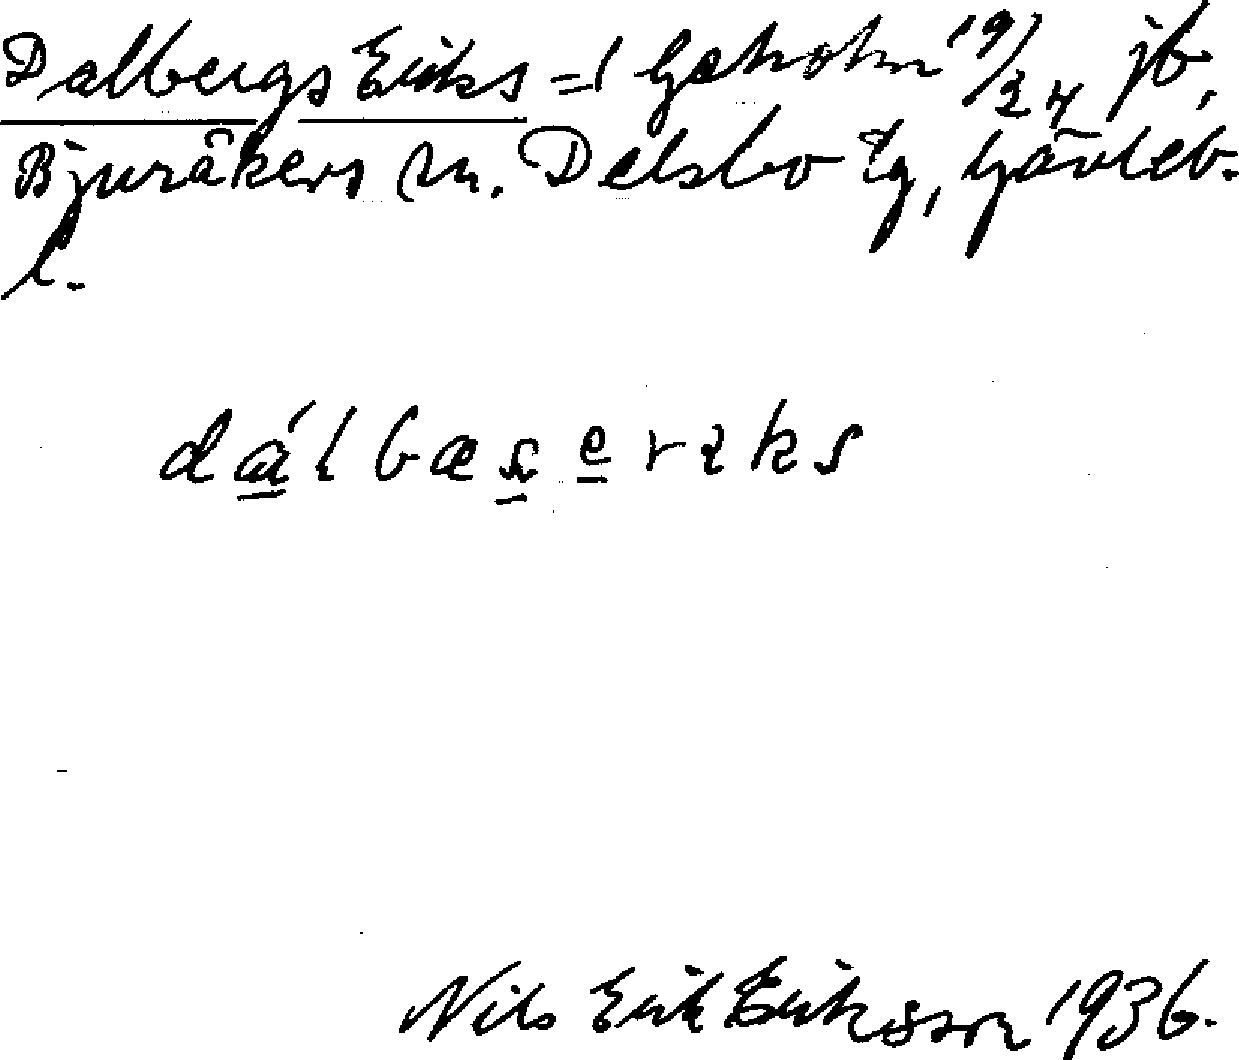 Dalbergs Eriks = 1 Gåsholm 19/24 jb,
Bjuråkers sn. Delsbo tg, Gävleb.
l.
dálbæʂ erɪks
Nils Erik Eriksson 1936.